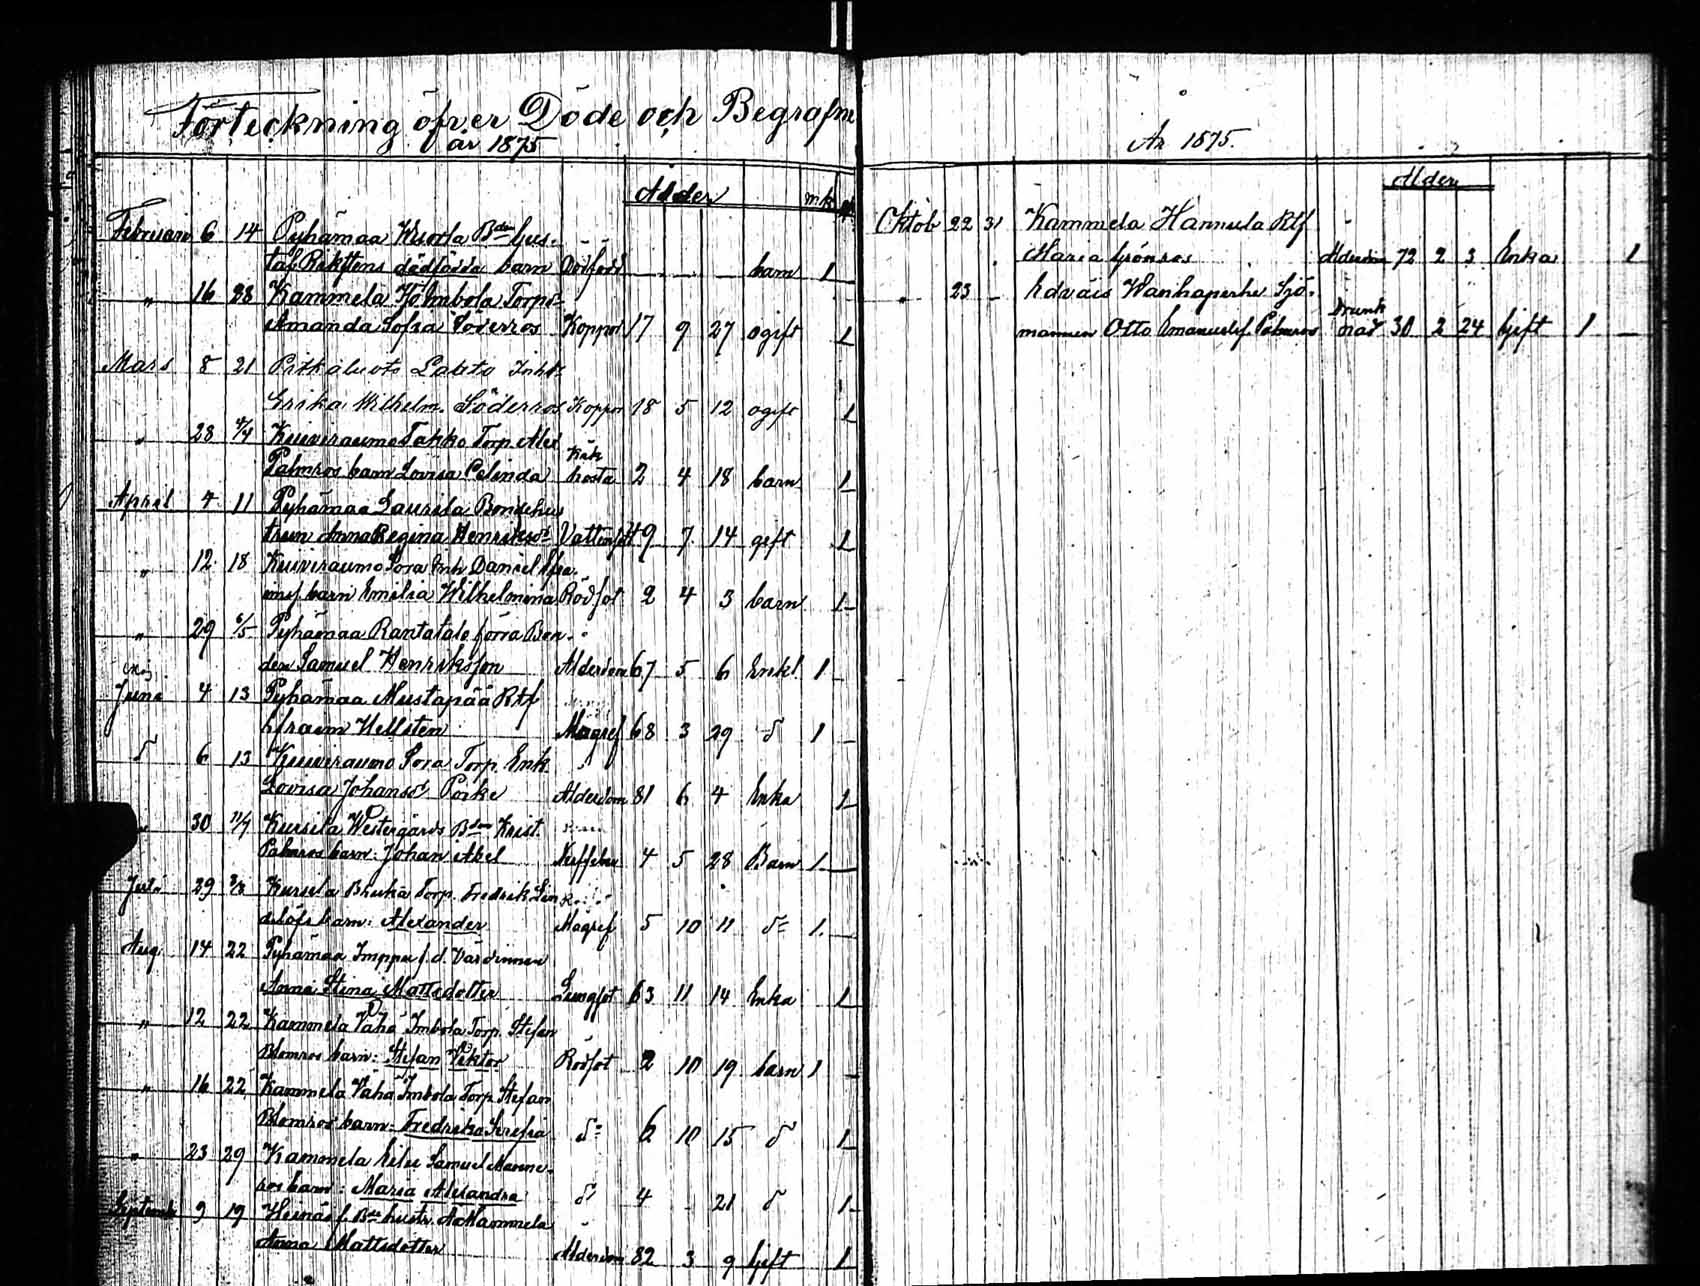 Förteckning öfver Döde och Begrafne
år 1875
Ålder mk
Februari 6 14 Pyhämaa Bdn Gus-
dödfödda barn Dödfödd barn 1
" 16 28 Kammela Torps
Amanda Sofia Söderros Koppor 17 9 27 ogift 1
Mars 8 21 Pitkäluoto Inh:
Erika Wilhelm. Söderros Koppor 18 5 12 ogift 1
" 28 4/4 Kuiviraumo Takko Torp.
Kik
Palmros barn Lovisa Celinda hosta 2 4 18 barn 1
April 4 11 Pyhämaa Laurila Bondehus
trun Anna Regina Henriksd Vattensot 49 7 14 gift 1
" 12 18 Kuiviraumo Sora Inh Daniel
barn Emilia Wilhelmina Rödsot 2 4 3 barn 1
" 29 6/5 Pyhämaa Rantatalo förra Bon-
den Samuel Henriksson Ålderdom 67 5 6 Enkl. 1
Juni 4 13 Pyhämaa Mustapää Rtf
Efraim Hellsten Magref 68 3 29 d 1
d 6 13 Kuiviraumo Sora Torp. Enk.
Lovisa Johansd Ålderdom 81 6 4 Enka 1
" 30 11/7 Kursila Westergårds Bdn Krist.
Palmros barn: Johan Axel 4 5 28 Barn 1
Juli 29 Kursila Torp. Fredrik Lin
delöfs barn: Alexander Magref 5 10 11 do 1
Aug. 14 22 Pyhämaa Imppu f.d. Värdinnan
Anna Stina Mattsdotter Lungsot 63 11 14 Enka 1
" 12 22 Kammela Vähä Imbola Torp. Stefan
Blomros barn: Stefan Viktor Rödsot 2 10 19 barn 1
" 16 22 Kammela Vähä Imbola Torp. Stefan
Blomros barn: Fredrika Serafia do 6 10 15 d 1
" 23 29 Kammela Samuel
ros barn: Maria Alexandra d 4 - 21 d 1
Septemb 9 19 Kammela
Anna Mattsdotter Ålderdom 82 3 9 Gift 1
År 1875.
Ålder
Oktob 22 31 Kammela Hannula Rtf
Maria Grönros Ålderdom 72 2 3 Enka 1
" 23 - Wanhaperhe Sjö-
Drunk
mannen Otto Emanuel Palmros nad 30 2 24 Gift 1